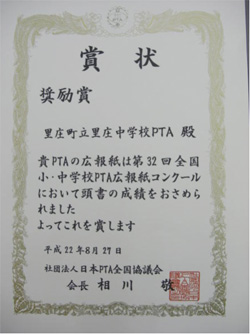 賞状
奨励賞
里庄町立里庄中学校PTA 殿
貴PTAの広報紙は第32回全国
小・中学校PTA広報紙コンクール
において頭書の成績をおさめら
れました
よってこれを賞します
平成22年8月27日
社団法人日本PTA全国協議会
会長 相川 敬